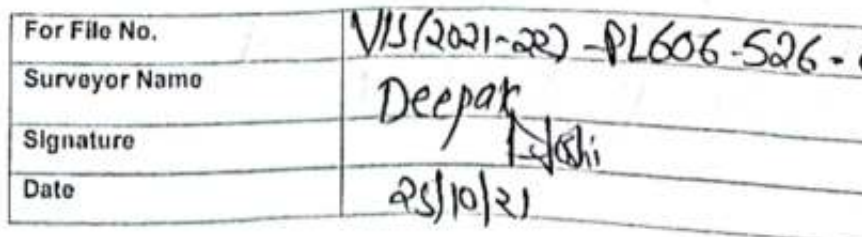 For File No. VIS(2021-22)-PL606-526-
Surveyor Name Deepak
Signature Joshi
Date 25/10/21